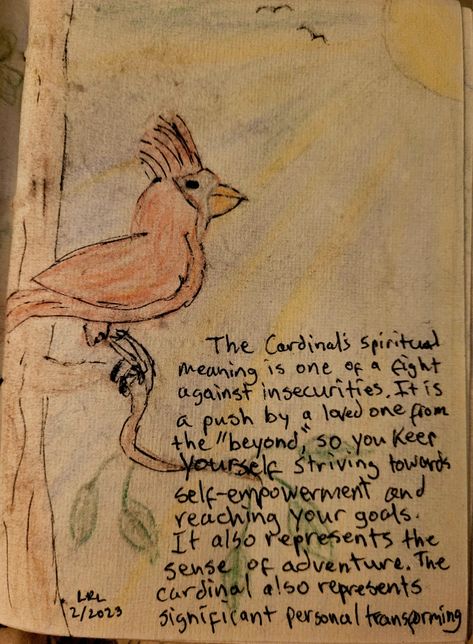 The Cardinal's spiritual
meaning is one of a fight
against insecurities. It is
a push by a loved one from
the "beyond," so you keep
yourself striving towards
self-empowerment and
reaching your goals.
It also represents the
sense of adventure. The
cardinal also represents
significant personal transforming
LRL
2/2023